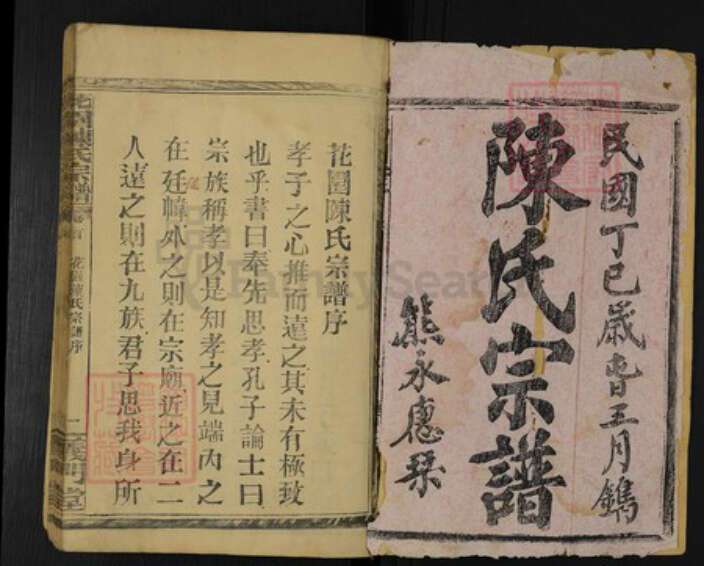 民國丁巳歲季五月鐫
陳氏宗譜
熊永惪琹
花園陳氏宗譜序
孝子之心推而遠之其未有極致
也乎書曰奉先思孝孔子論士曰
宗族稱孝以是知孝之見端內之
在廷幃外之則在宗廟近之在二
人遠之則在九族君子思我身所
花園陳氏宗譜 卷首
花園陳氏宗譜序
一
義門堂
FamilySearch